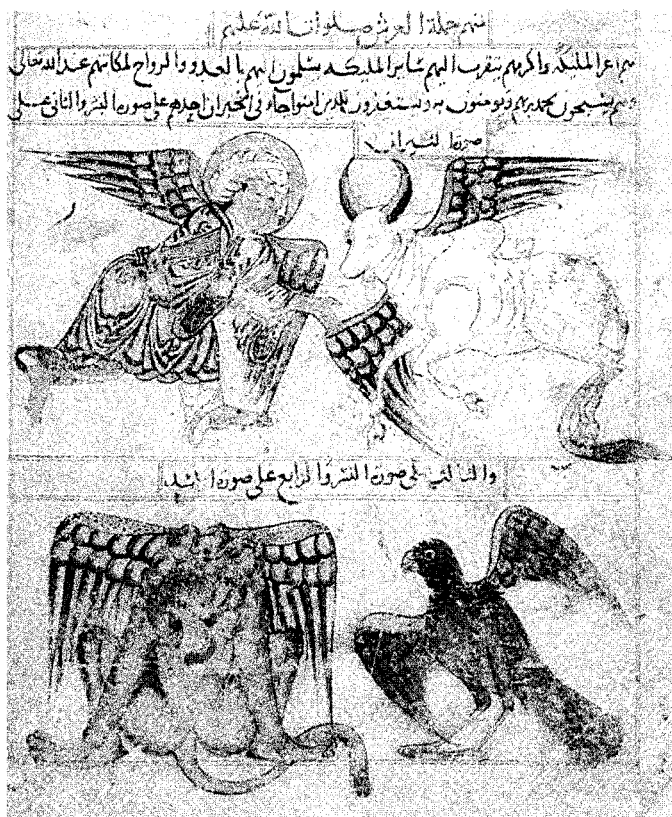 منهم حملة العرش صلوات الله عليهم
هم اعز الملئكه واكرمهم يتقرب اليهم سائر الملئكه يسلمون اليهم بالغدو والرواح لمكانتهم عند الله تعالى
وهم يسبحون بحمد ربهم ويومنون به ويستغفرون للذين امنوا جاء في الخبر ان احدهم على صورة البشر والثاني على
صورة الثيران
والثالث على صورة النسر والرابع على صورة الاسد